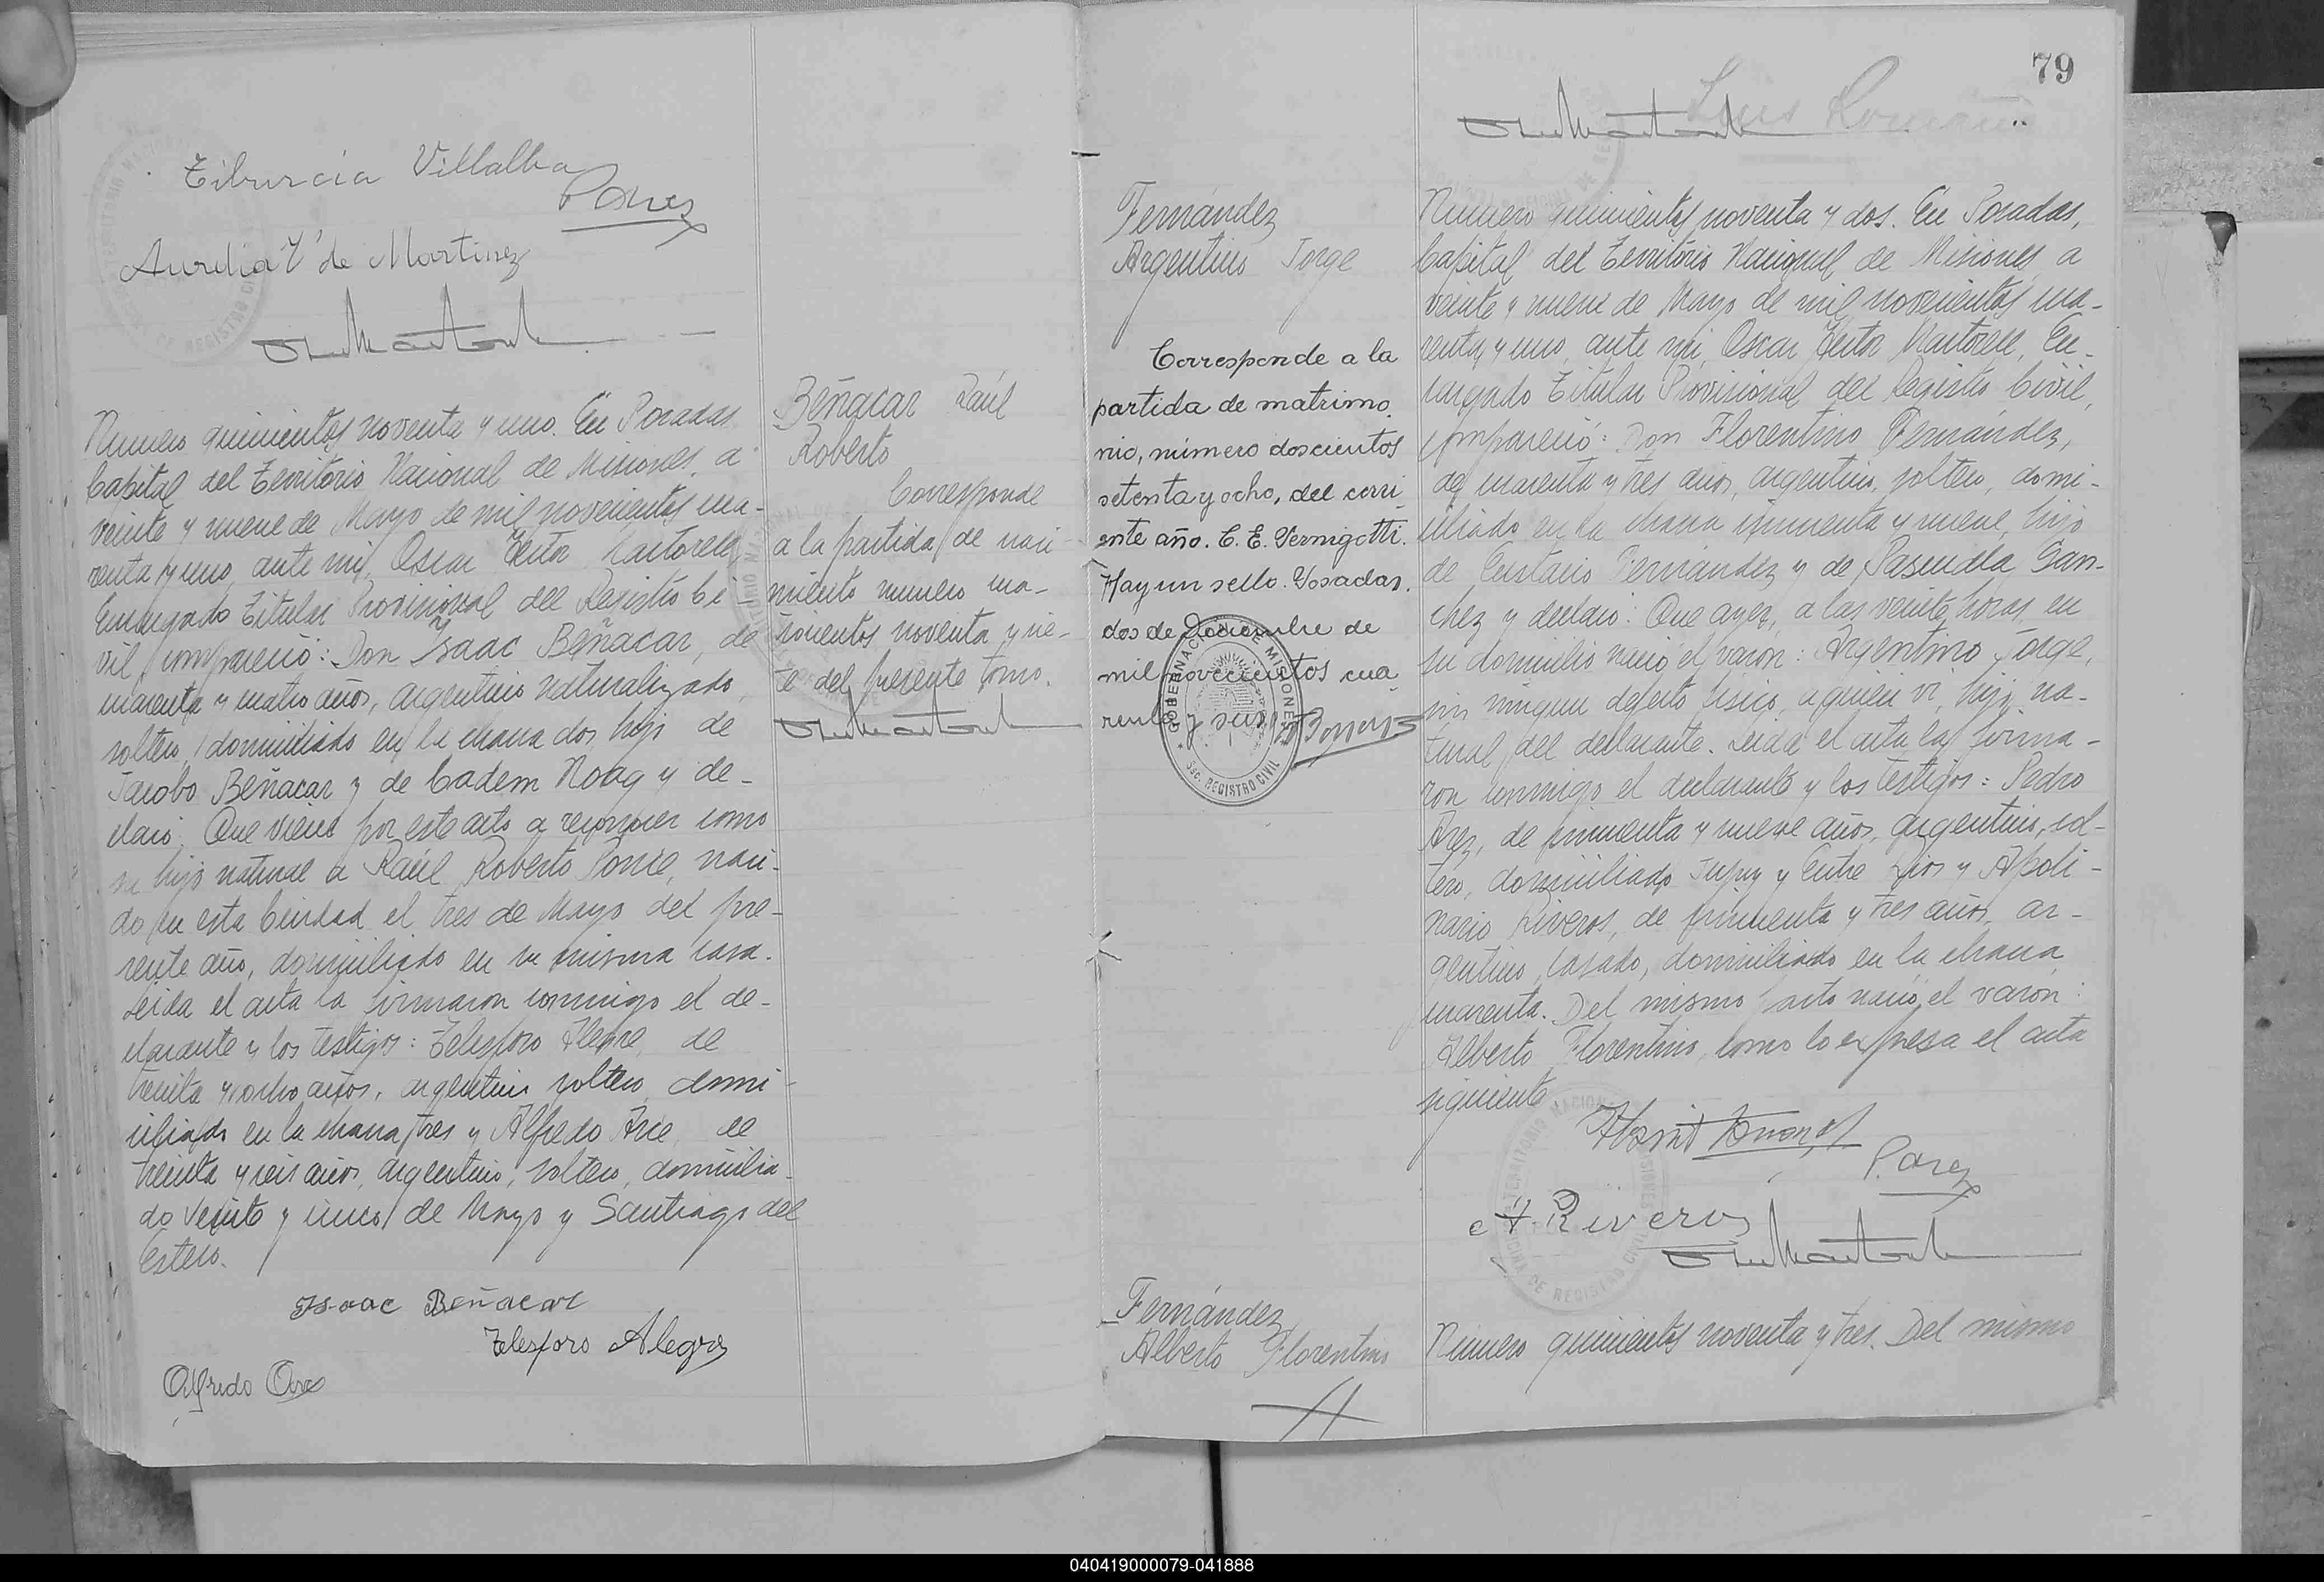 Tiburcia Villalba
PAres
Aurelia V. de Martinez
Numero quinientos noventa y uno. En Posadas
Capital del Territorio Nacional de Misiones, a
veinte y nueve de Mayo de mil novecientos cua-
renta y uno, ante mi, Oscar Heitor Martorell,
Encargado Titular Provisional del Registro Ci-
vil, compareció: Don Isaac Beñacar, de
cuarenta y cuatro años, argentino naturalizado,
soltero, domiciliado en la chacra dos, hijo de
Jacobo Beñacar y de Cadem Noag y de-
claró: Que viene por este acto a reconocer como
su hijo natural a Raúl Roberto Ponce, naci-
do en esta Ciudad el tres de Mayo del pre-
sente año, domiciliado en su misma casa.
Leida el acta la firmaron conmigo el de-
clarante y los testigos: Telesforo Alegre, de
treinta y ocho años, argentino, soltero, domi-
ciliado en la chacra tres y Alfredo Arce, de
treinta y seis años, argentino, soltero, domicilia-
do Veinte y cinco de Mayo y Santiago del
Estero.
Isaac Beñacar
Telesforo Alegre
Alfredo Arce
Beñacar Raúl
Roberto
Corresponde
a la partida de naci-
miento numero cua-
trocientos noventa y sie-
te del presente tomo.
79
Luis Roman
Fernández
Argentino Jorge
Corresponde a la
partida de matrimo-
nio, número doscientos
setenta y ocho, del corri-
ente año. C. E. Vernigotti.
Hay un sello. Posadas.
dos de Diciembre de
mil novecientos cua
renta y seis
GOBERNACION DE MISIONES
Sec. REGISTRO CIVIL
Numero quinientos noventa y dos. En Posadas,
Capital del Territorio Nacional de Misiones, a
veinte y nueve de Mayo de mil novecientos cua-
renta y uno, ante mi, Oscar Heitor Martorell, En-
cargado Titular Provisional del Registro Civil,
compareció: Don Florentino Fernández,
de cuarenta y tres años, argentino, soltero, domi-
ciliado en la chacra cincuenta y nueve, hijo
de Eustacio Fernández y de Pascuala San-
chez y declaró: Que ayer, a las veinte horas, en
su domicilio nació el varon: Argentino Jorge,
sin ningun defecto fisico, a quien vi, hijo na-
tural del declarante. Leida el acta la firma-
ron conmigo el declarante y los testigos: Pedro
Arez, de cincuenta y nueve años, argentino, sol-
tero, domiciliado Jujuy y Entre Rios y Apoli-
nario Riveros, de cincuenta y tres años, ar-
gentino, casado, domiciliado en la chacra
cuarenta. Del mismo parto nació el varon:
Alberto Florentino, como lo expresa el acta
siguiente
P. Arez
A. Riveros
Fernández
Alberto Florentino
Numero quinientos noventa y tres. Del mismo
040419000079-041888